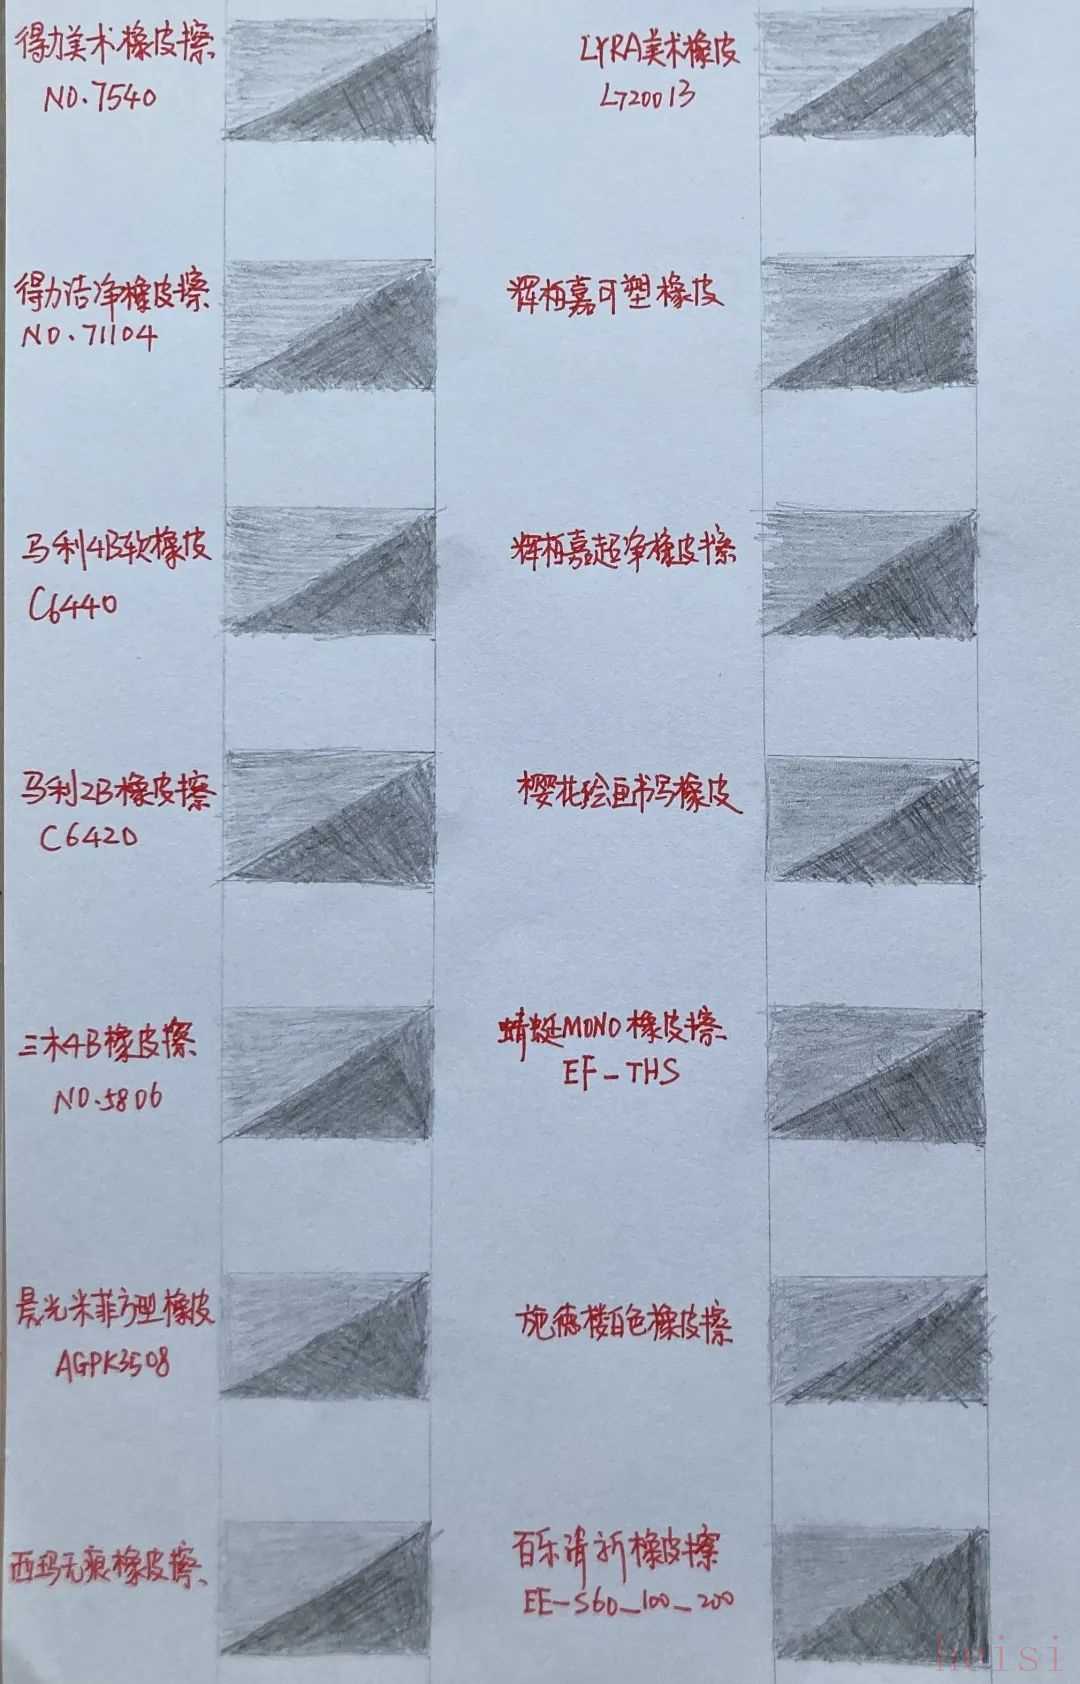 得力美术橡皮擦
NO.7540
LYRA美术橡皮
L720013
得力洁净橡皮擦
NO.71104
辉柏嘉可塑橡皮
马利4B软橡皮
C6440
辉柏嘉超净橡皮擦
马利2B橡皮擦
C6420
樱花绘画书写橡皮
三木4B橡皮擦
NO.5806
蜻蜓MONO橡皮擦
EF-THS
晨光米菲方型橡皮
AGPK3508
施德楼白色橡皮擦
西玛无痕橡皮擦
百乐清新橡皮擦
EE-S60_100_200
heisi